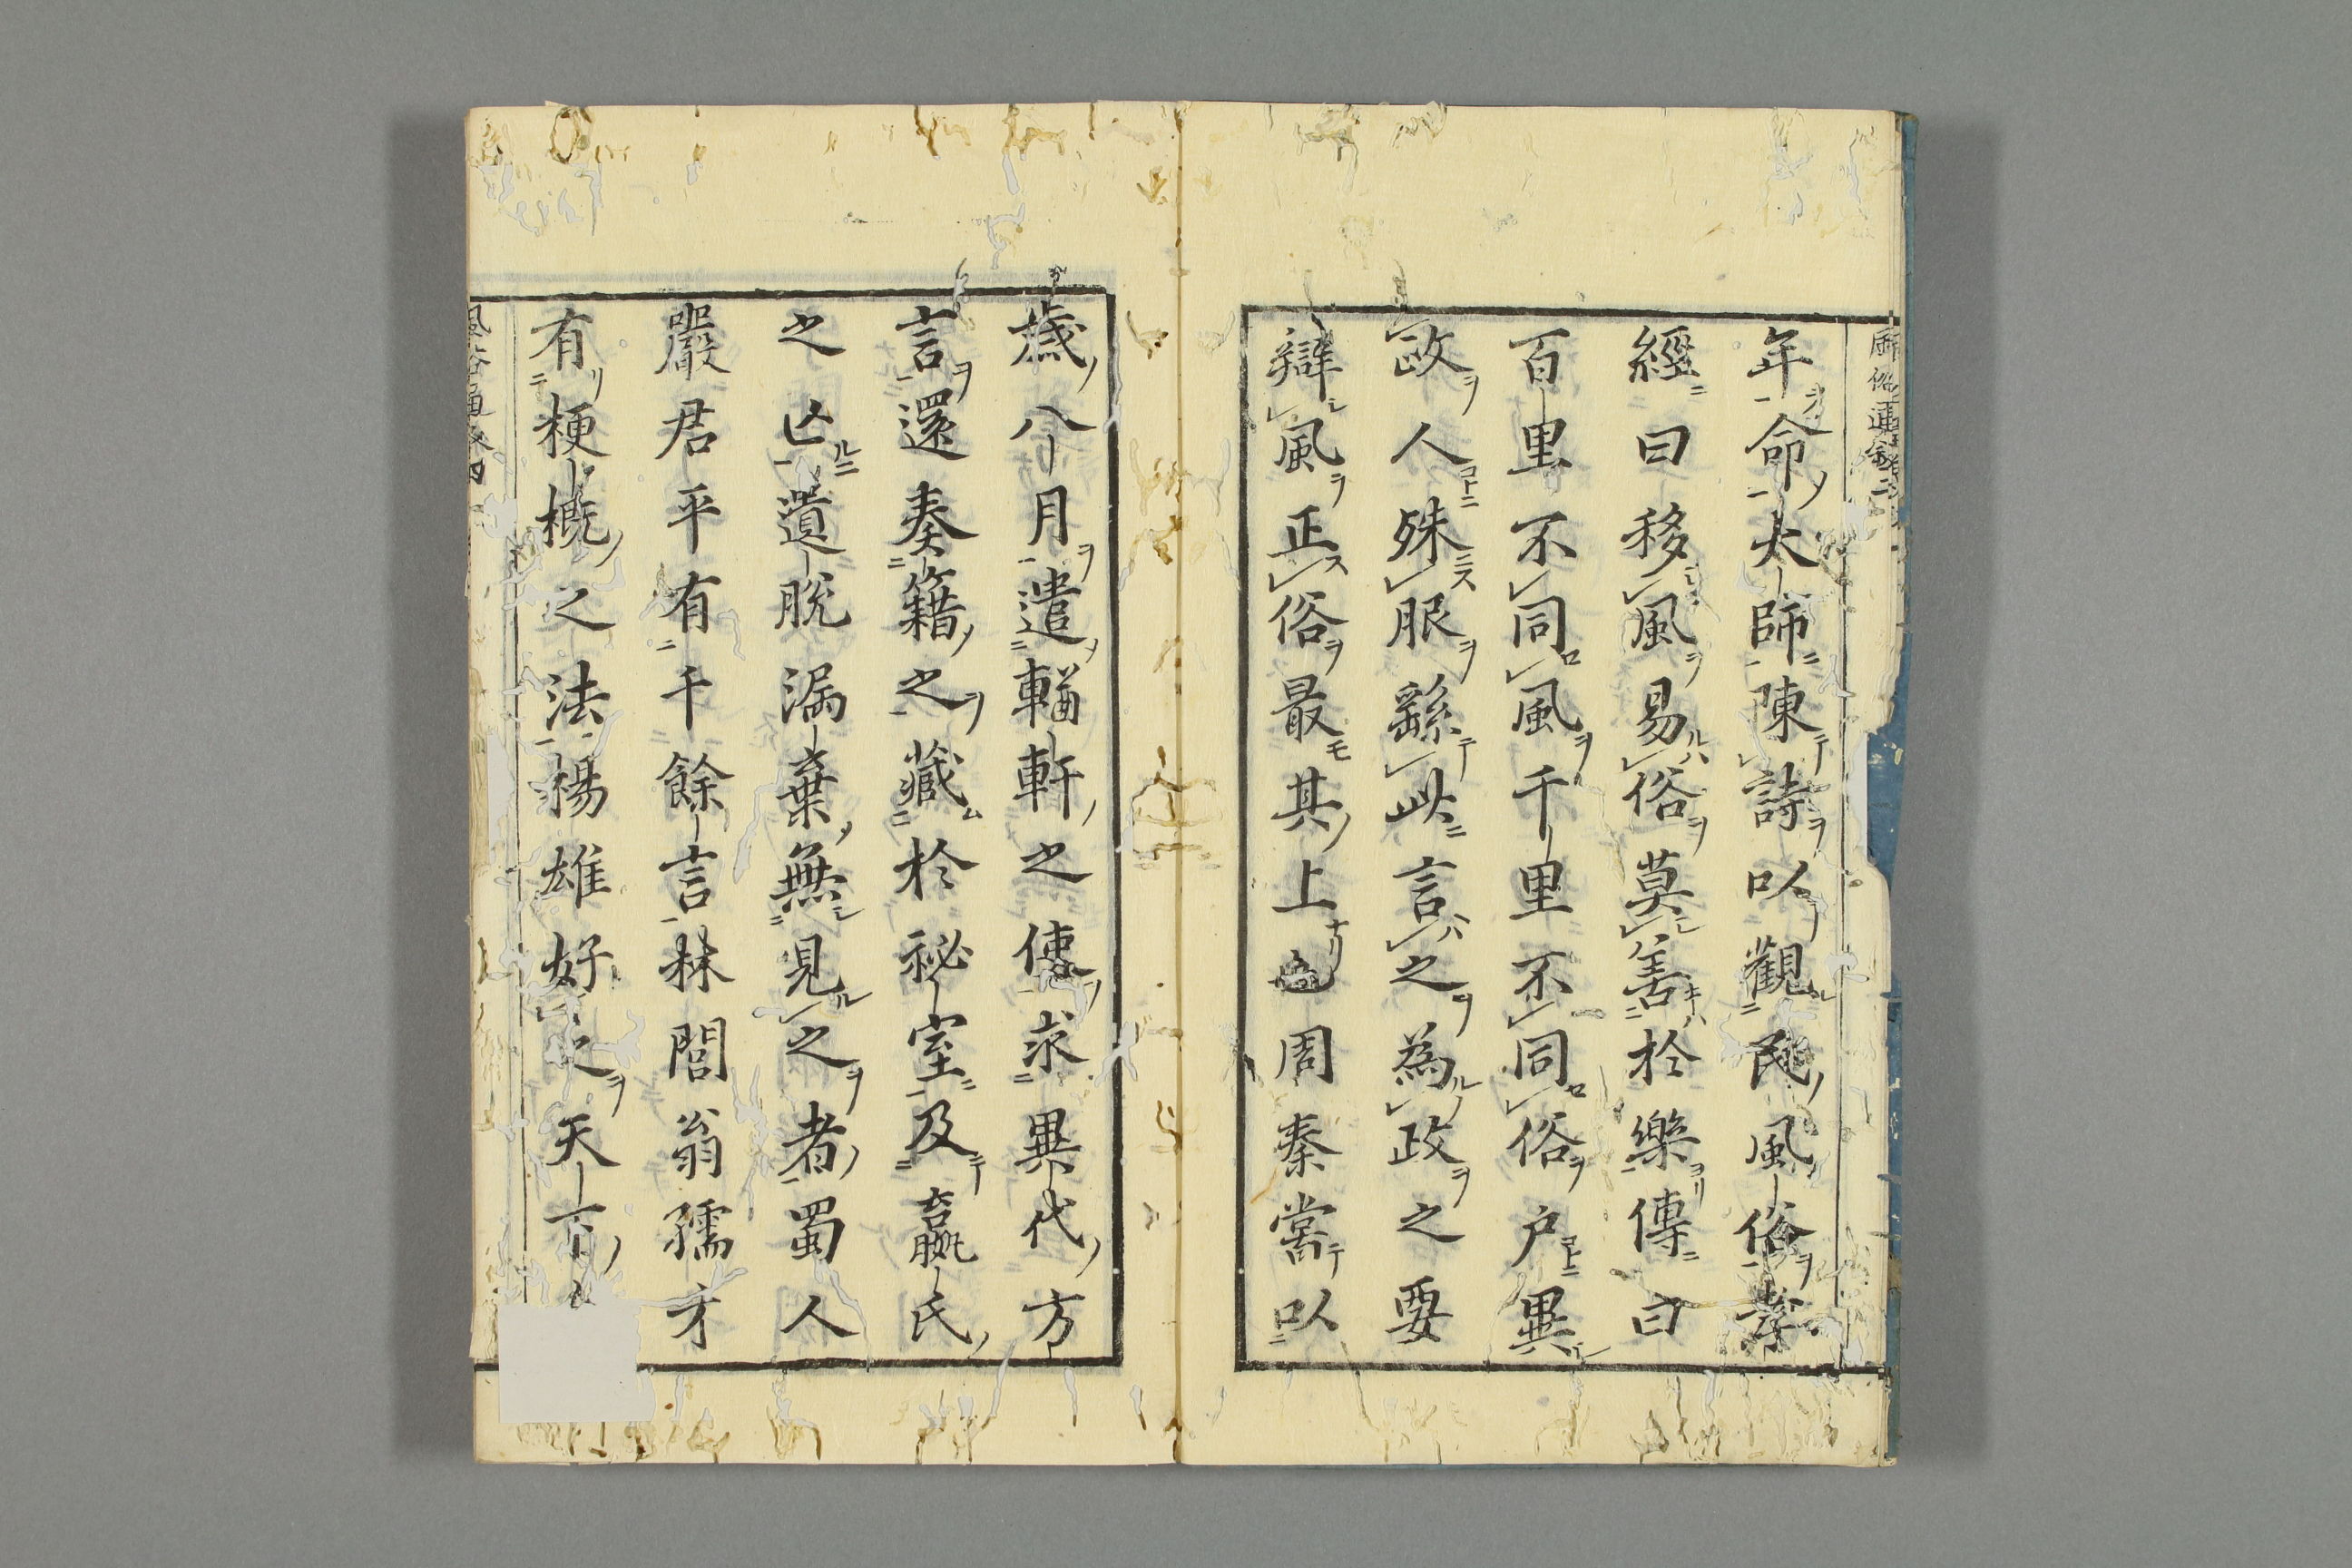 年命太師陳詩以觀民風俗孝
經曰移風易俗莫善於樂傳曰
百里不同風千里不同俗户異
政人殊服繇此言之為政之要
辯風正俗最其上也周秦嘗以
歲八月遣輶軒之使求異代方
言還奏籍之藏於祕室及嬴氏
之亡遺脱漏棄無見之者蜀人
嚴君平有千餘言林閭翁孺才
有梗概之法揚雄好之天下